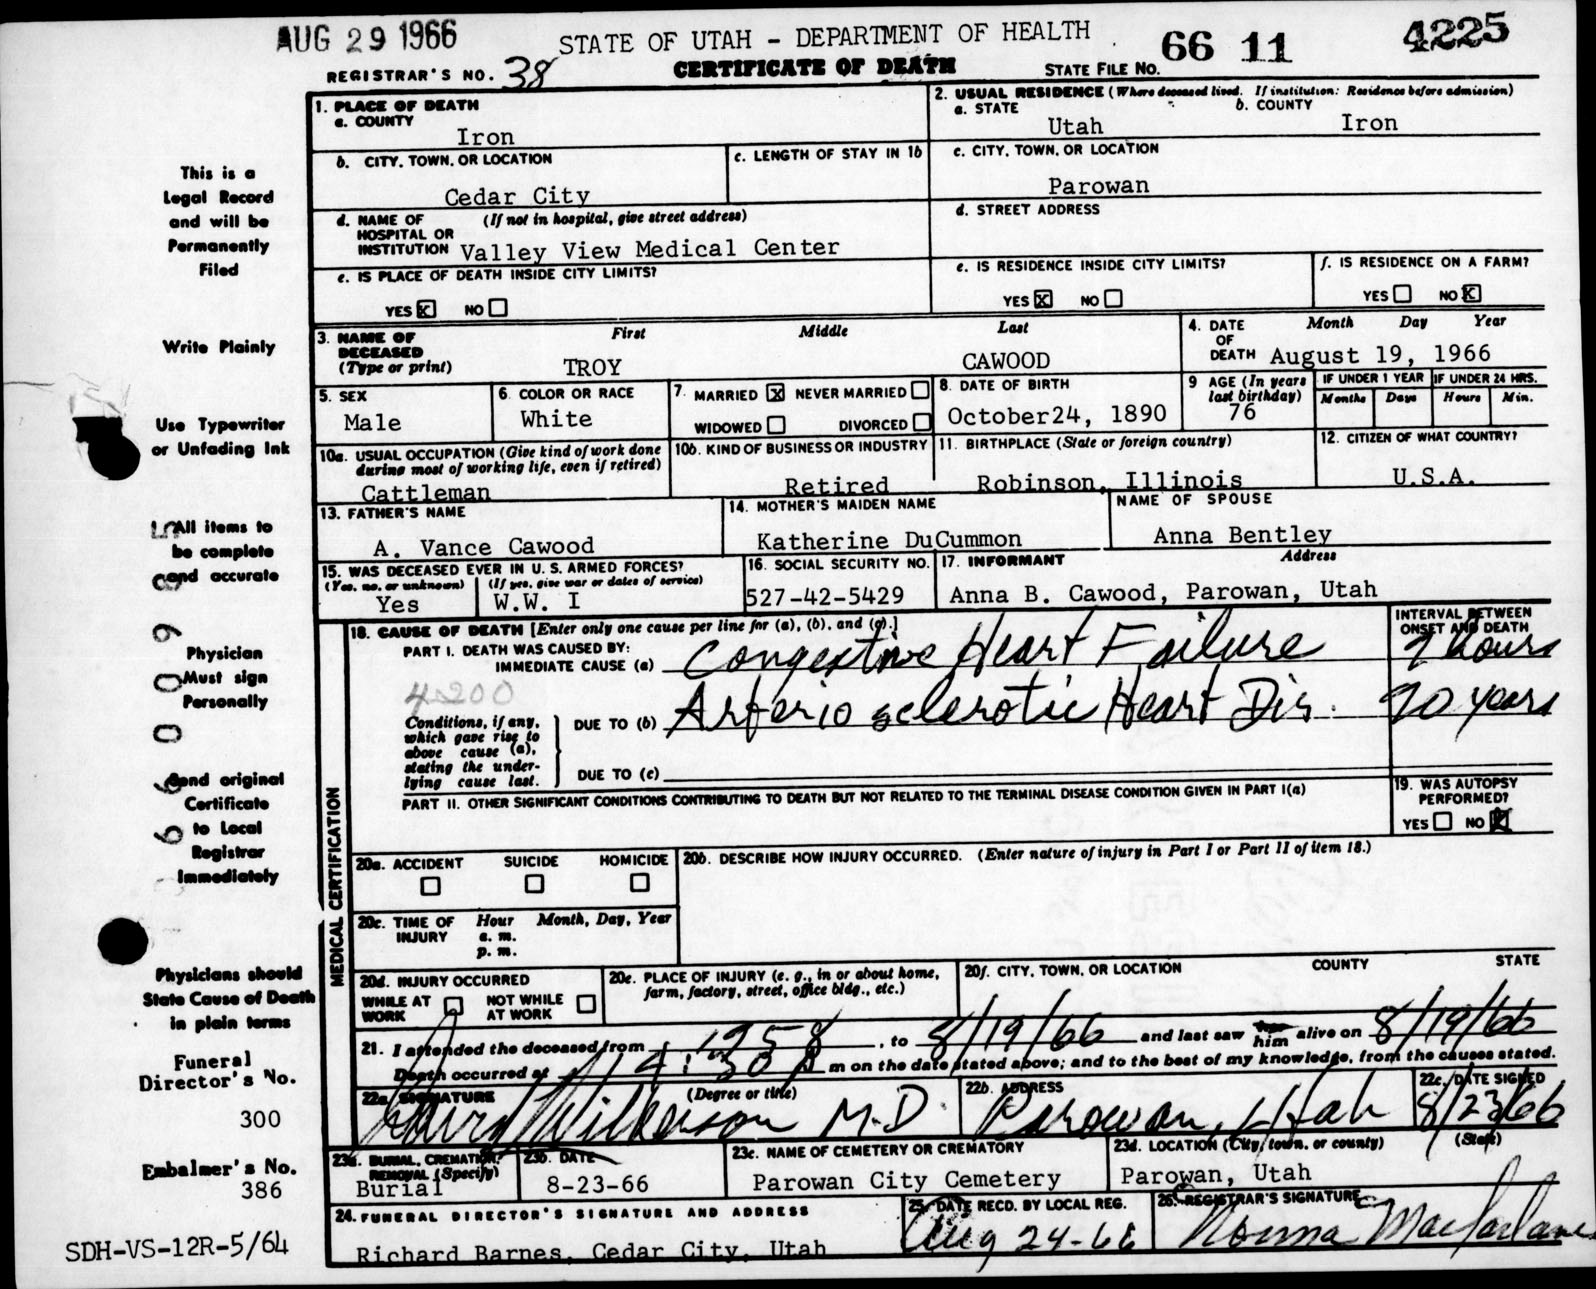 AUG 29 1966
STATE OF UTAH - DEPARTMENT OF HEALTH
66 11 4225
REGISTRAR'S NO. 38
CERTIFICATE OF DEATH
STATE FILE NO.
1. PLACE OF DEATH
a. COUNTY
Iron
2. USUAL RESIDENCE (Where deceased lived. If institution: Residence before admission)
a. STATE
Utah
b. COUNTY
Iron
b. CITY, TOWN, OR LOCATION
Cedar City
c. LENGTH OF STAY IN 1b
c. CITY, TOWN, OR LOCATION
Parowan
d. NAME OF (If not in hospital, give street address)
HOSPITAL OR
INSTITUTION Valley View Medical Center
d. STREET ADDRESS
e. IS PLACE OF DEATH INSIDE CITY LIMITS?
YES X NO
e. IS RESIDENCE INSIDE CITY LIMITS?
YES X NO
f. IS RESIDENCE ON A FARM?
YES NO X
3. NAME OF
DECEASED
(Type or print)
First Middle Last
TROY CAWOOD
4. DATE
OF
DEATH
Month Day Year
August 19, 1966
5. SEX
Male
6. COLOR OR RACE
White
7. MARRIED X NEVER MARRIED
WIDOWED DIVORCED
8. DATE OF BIRTH
October24, 1890
9 AGE (In years
last birthday)
76
IF UNDER 1 YEAR
Months Days
IF UNDER 24 HRS.
Hours Min.
10a. USUAL OCCUPATION (Give kind of work done
during most of working life, even if retired)
Cattleman
10b. KIND OF BUSINESS OR INDUSTRY
Retired
11. BIRTHPLACE (State or foreign country)
Robinson, Illinois
12. CITIZEN OF WHAT COUNTRY?
U.S.A.
13. FATHER'S NAME
A. Vance Cawood
14. MOTHER'S MAIDEN NAME
Katherine DuCummon
NAME OF SPOUSE
Anna Bentley
15. WAS DECEASED EVER IN U. S. ARMED FORCES?
(Yes, no, or unknown) (If yes, give war or dates of service)
Yes W.W. I
16. SOCIAL SECURITY NO.
527-42-5429
17. INFORMANT Address
Anna B. Cawood, Parowan, Utah
18. CAUSE OF DEATH [Enter only one cause per line for (a), (b), and (c).]
INTERVAL BETWEEN
ONSET AND DEATH
PART I. DEATH WAS CAUSED BY:
IMMEDIATE CAUSE (a) Congestive Heart Failure
hours
4200
Conditions, if any,
which gave rise to
above cause (a),
stating the under-
lying cause last.
DUE TO (b) Arterio sclerotic Heart Dis.
years
DUE TO (c)
PART II. OTHER SIGNIFICANT CONDITIONS CONTRIBUTING TO DEATH BUT NOT RELATED TO THE TERMINAL DISEASE CONDITION GIVEN IN PART I(a)
19. WAS AUTOPSY
PERFORMED?
YES NO X
MEDICAL CERTIFICATION
20a. ACCIDENT SUICIDE HOMICIDE
20b. DESCRIBE HOW INJURY OCCURRED. (Enter nature of injury in Part I or Part II of item 18.)
20c. TIME OF
INJURY
Hour Month, Day, Year
a. m.
p. m.
20d. INJURY OCCURRED
WHILE AT
WORK
NOT WHILE
AT WORK
20e. PLACE OF INJURY (e. g., in or about home,
farm, factory, street, office bldg., etc.)
20f. CITY, TOWN, OR LOCATION COUNTY STATE
21. I attended the deceased from 1958, to 8/19/66 and last saw her him alive on 8/19/66
Death occurred at 4:30 p m on the date stated above; and to the best of my knowledge, from the causes stated.
22a. SIGNATURE (Degree or title)
Wilkerson M.D.
22b. ADDRESS
Parowan, Utah
22c. DATE SIGNED
8/23/66
23a. BURIAL, CREMATION,
REMOVAL (Specify)
Burial
23b. DATE
8-23-66
23c. NAME OF CEMETERY OR CREMATORY
Parowan City Cemetery
23d. LOCATION (City, town, or county) (State)
Parowan, Utah
24. FUNERAL DIRECTOR'S SIGNATURE AND ADDRESS
Richard Barnes, Cedar City, Utah
25. DATE RECD. BY LOCAL REG.
Aug 24-66
26. REGISTRAR'S SIGNATURE
Norma Macfarlane
This is a
Legal Record
and will be
Permanently
Filed
Write Plainly
Use Typewriter
or Unfading Ink
All items to
be complete
and accurate
Physician
Must sign
Personally
Send original
Certificate
to Local
Registrar
Immediately
Physicians should
State Cause of Death
in plain terms
Funeral
Director's No.
300
Embalmer's No.
386
SDH-VS-12R-5/64